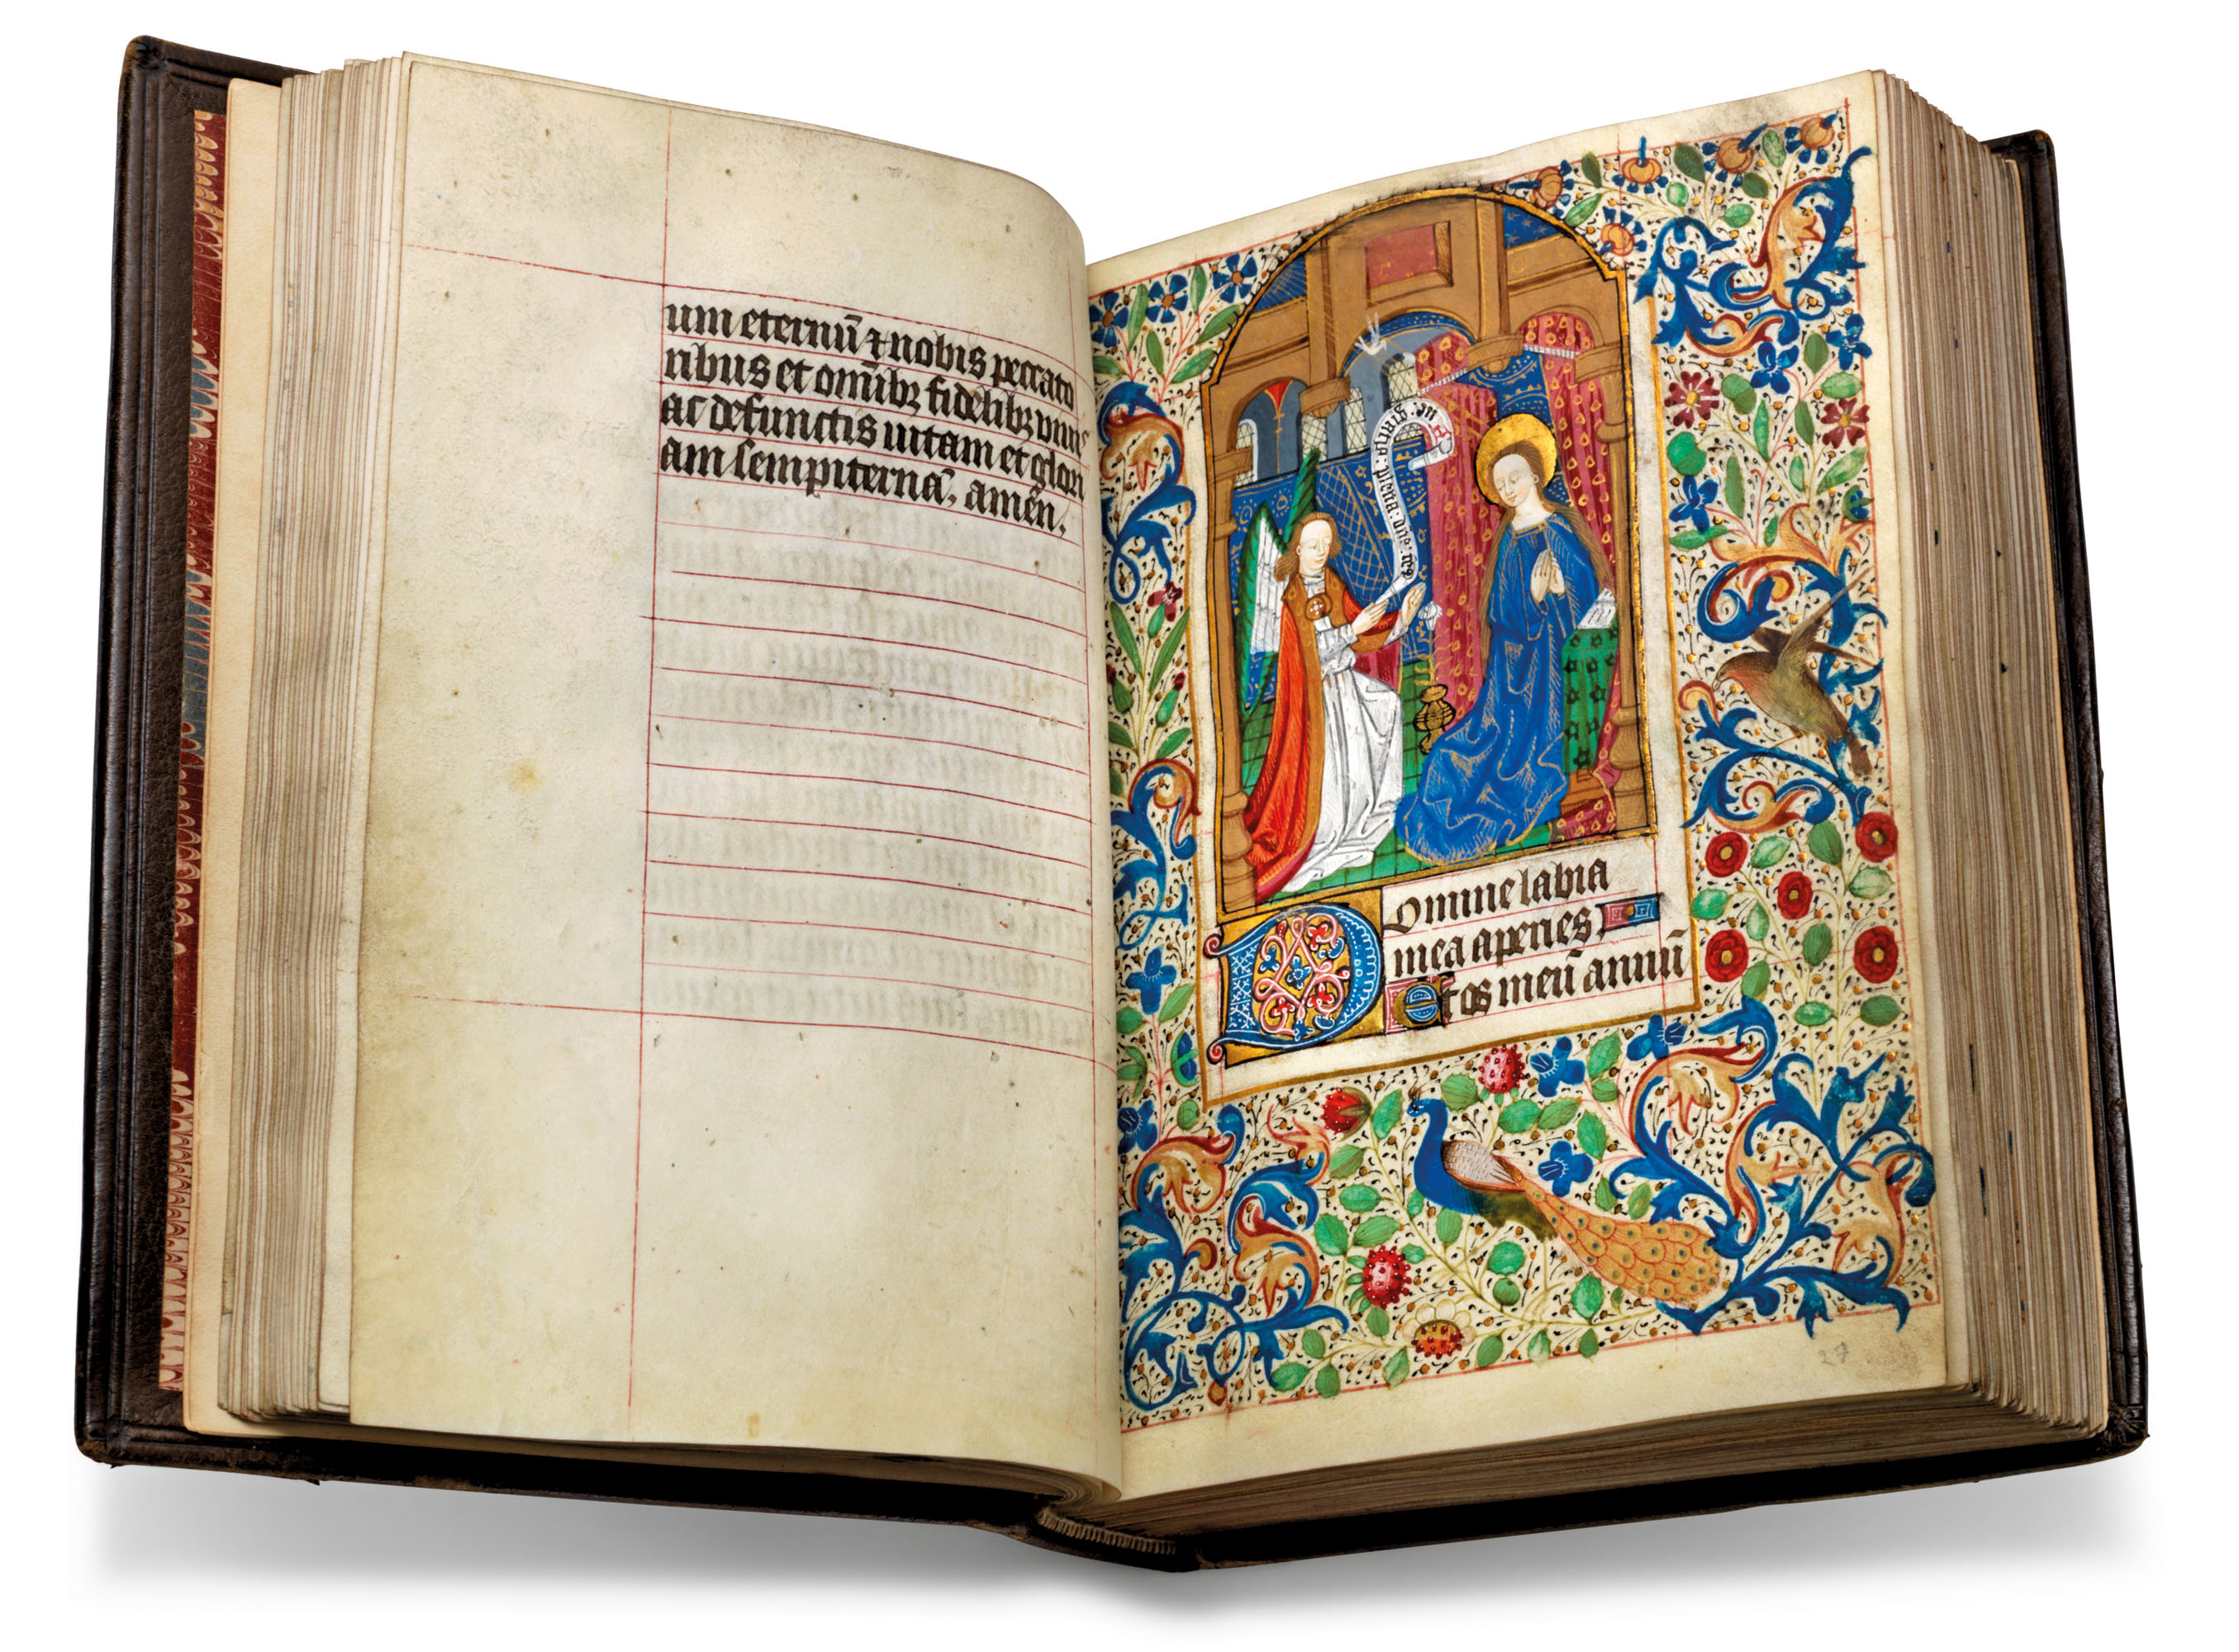 um eternū ⁊ nobis peccato
ribus et omībꝫ fidelibꝫ viuis
ac defunctis uitam et glori
am sempiternā, amen.
aue: gracia: plena: dns: tecū
Domine labia
mea aperies,
et os meū annū
27